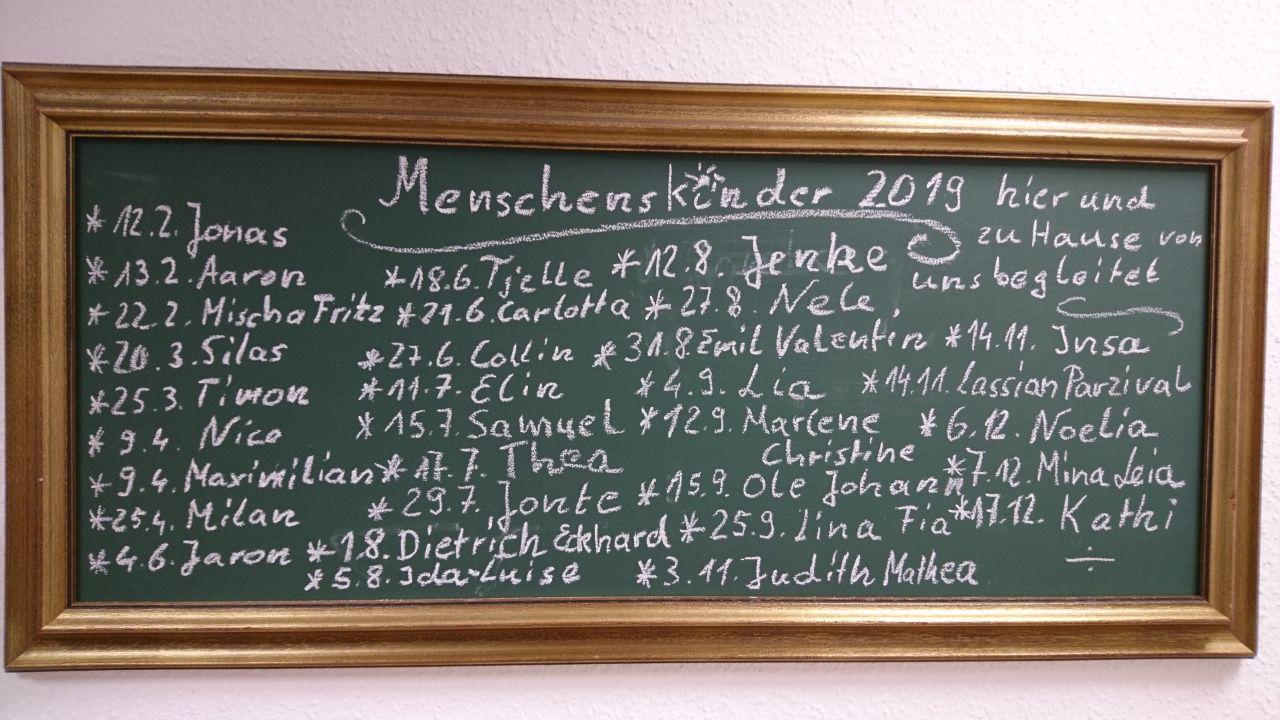 Menschenskinder 2019 hier und
zu Hause von
uns begleitet
* 12.2. Jonas
* 13.2. Aaron
* 22.2. Mischa Fritz
* 20.3. Silas
* 25.3. Timon
* 9.4. Nico
* 9.4. Maximilian
* 25.4. Milan
* 4.6. Jaron
* 18.6. Tjelle
* 21.6. Carlotta
* 27.6. Collin
* 11.7. Elin
* 15.7. Samuel
* 17.7. Thea
* 29.7. Jonte
* 1.8. Dietrich Eckhard
* 5.8. Ida-Luise
* 12.8. Jenke
* 27.8. Nele
* 31.8. Emil Valentin
* 4.9. Lia
* 12.9. Marlene
Christine
* 15.9. Ole Johann
* 25.9. Lina Fia
* 3.11. Judith Mathea
* 14.11. Insa
* 14.11. Lassian Parzival
* 6.12. Noelia
* 7.12. Mina Leia
* 17.12. Kathi